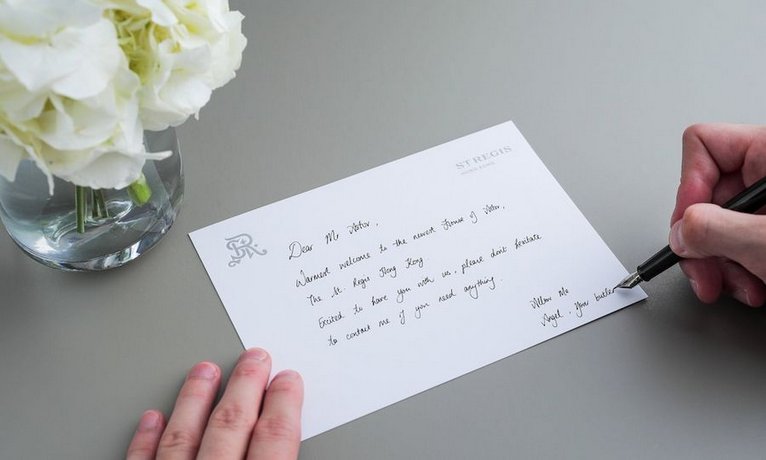 ST REGIS
HONG KONG
Dear Mr Astor,
Warmest welcome to the newest House of Astor,
The St. Regis Hong Kong
Excited to have you with us, please don't hesitate
to contact me if you need anything.
Allow Me
Angel, Your butler